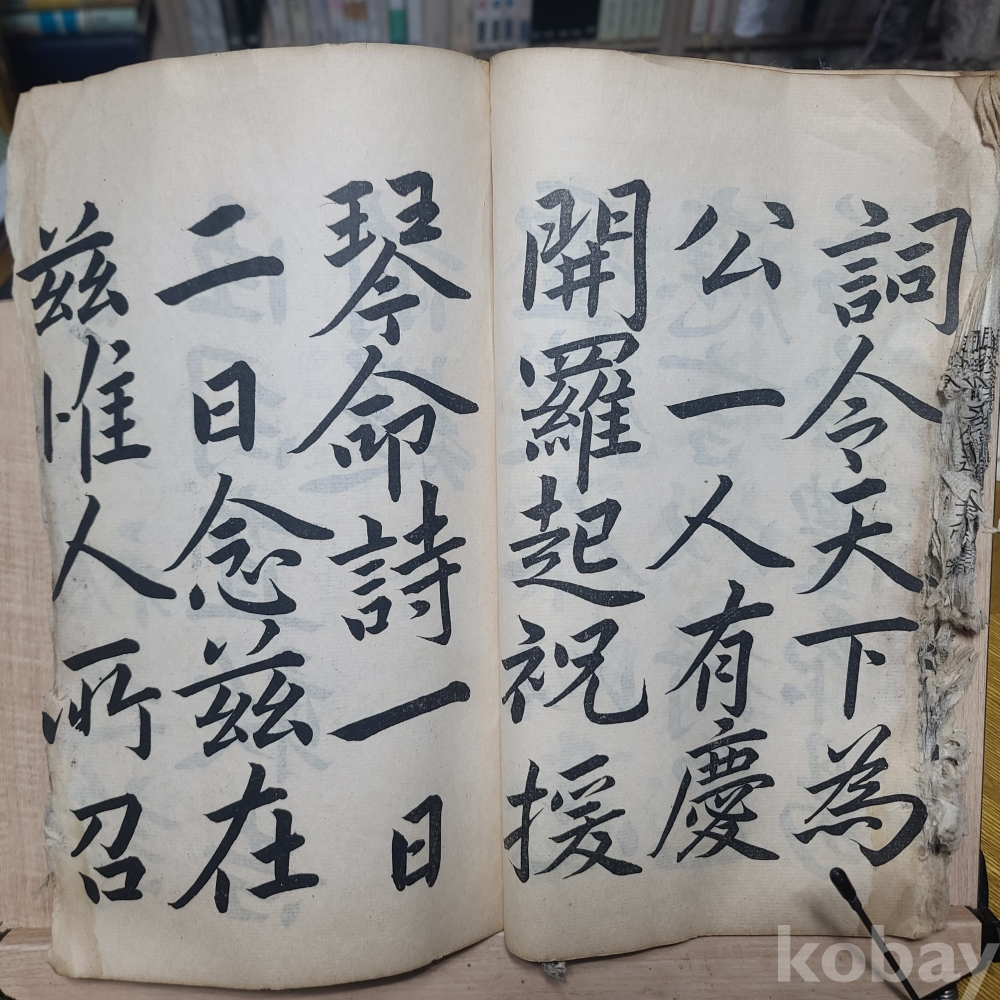 詞令天下為
公一人有慶
開羅起祝援
琴命詩一日
二日念茲在
茲惟人所召
kobay